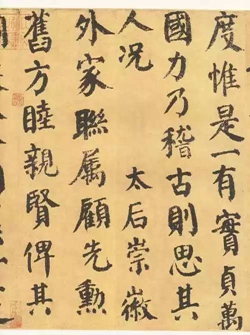 度惟是一有實貞萬
國力乃稽古則思其
人况 太后崇徽
外家聯属顧先勳
舊方睦親賢俾其